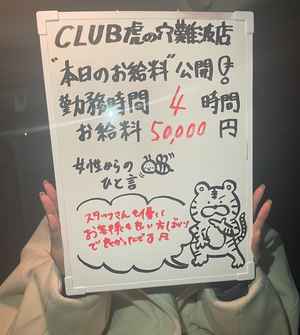 CLUB虎の穴難波店
"本日のお給料"公開!
勤務時間 4 時間
お給料 50,000 円
女性からの
ひと言
スタッフさんも優しく
お客様も良い方ばかり
で良かったです